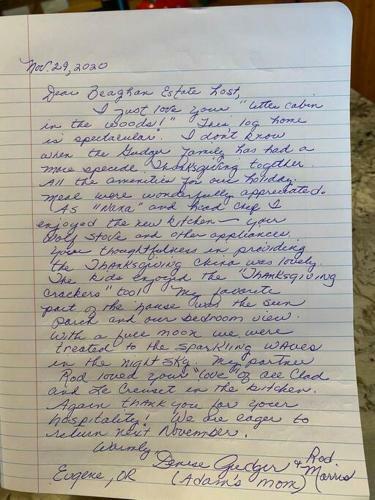 Nov. 29, 2020
Dear Beaghan Estate host,
I just love your "little cabin
in the woods!" This log home
is spectacular. I don't know
when the Gudger family has had a
more special Thanksgiving together.
All the amenities for our holiday
meal were wonderfully appreciated.
As "Nana" and head chef I
enjoyed the new kitchen - your
Wolf stove and other appliances.
Your thoughtfulness in providing
the Thanksgiving China was lovely.
The kids enjoyed the "Thanksgiving
crackers" too!! My favorite
part of the house was the sun
porch and our bedroom view.
With a full moon we were
treated to the sparkling waves
in the night sky. My partner
Rod loved your "love" of All Clad
and Le Creuset in the kitchen.
Again thank you for your
hospitality! We are eager to
return next November.
Warmly,
Denise Gudger & Rod Morris
Eugene, OR (Adam's mom)